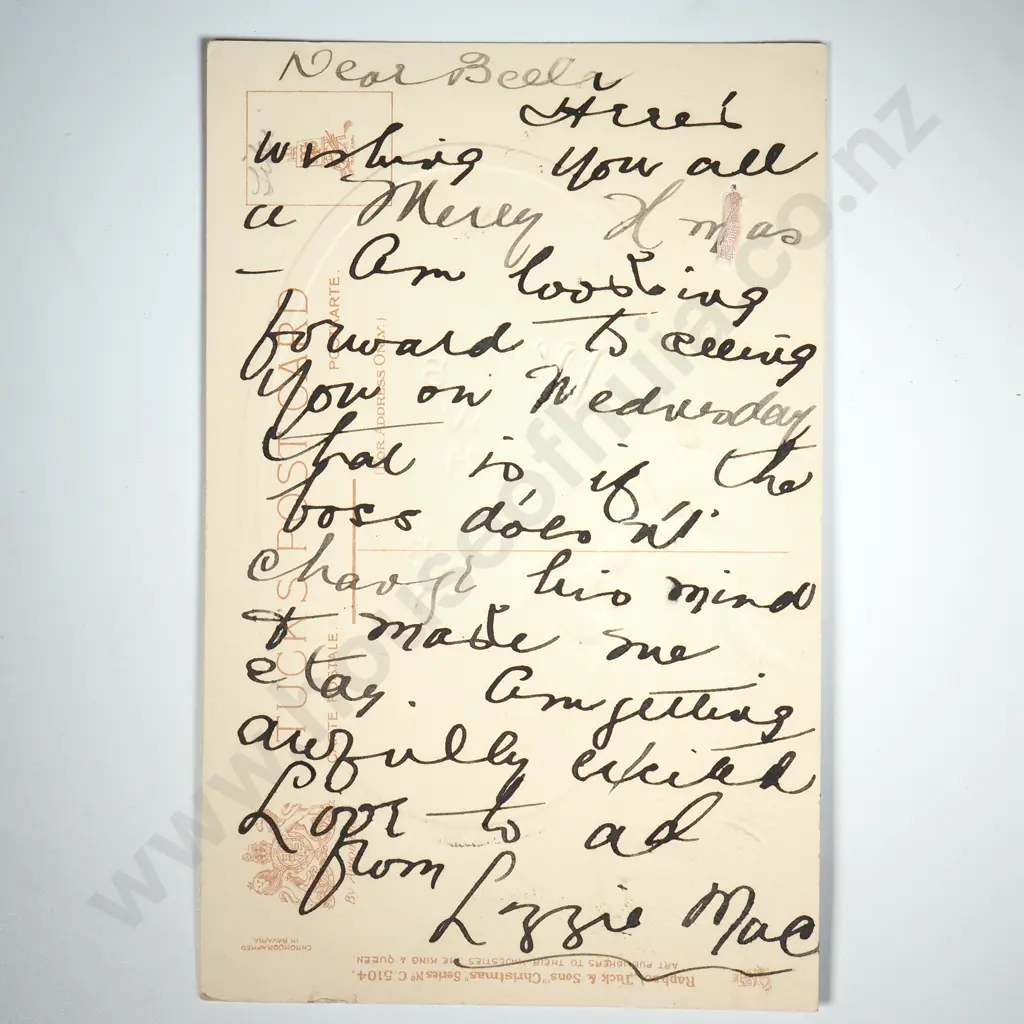 Dear Bella
Here's
wishing you all
a Merry Xmas
- Am looking
forward to seeing
you on Wednesday
that is if the
boss does'n't
change his mind
& make me
stay. Am getting
awfully excited
Love to all
from
Lizzie Mac
TUCK'S POST CARD
CARTE POSTALE.
POSTKARTE.
(FOR ADDRESS ONLY.)
CHROMOGRAPHED
IN BAVARIA
Raphael Tuck & Sons' "Christmas" Series No C. 5104.
ART PUBLISHERS TO THEIR MAJESTIES THE KING & QUEEN.
www.houseofhuia.co.nz